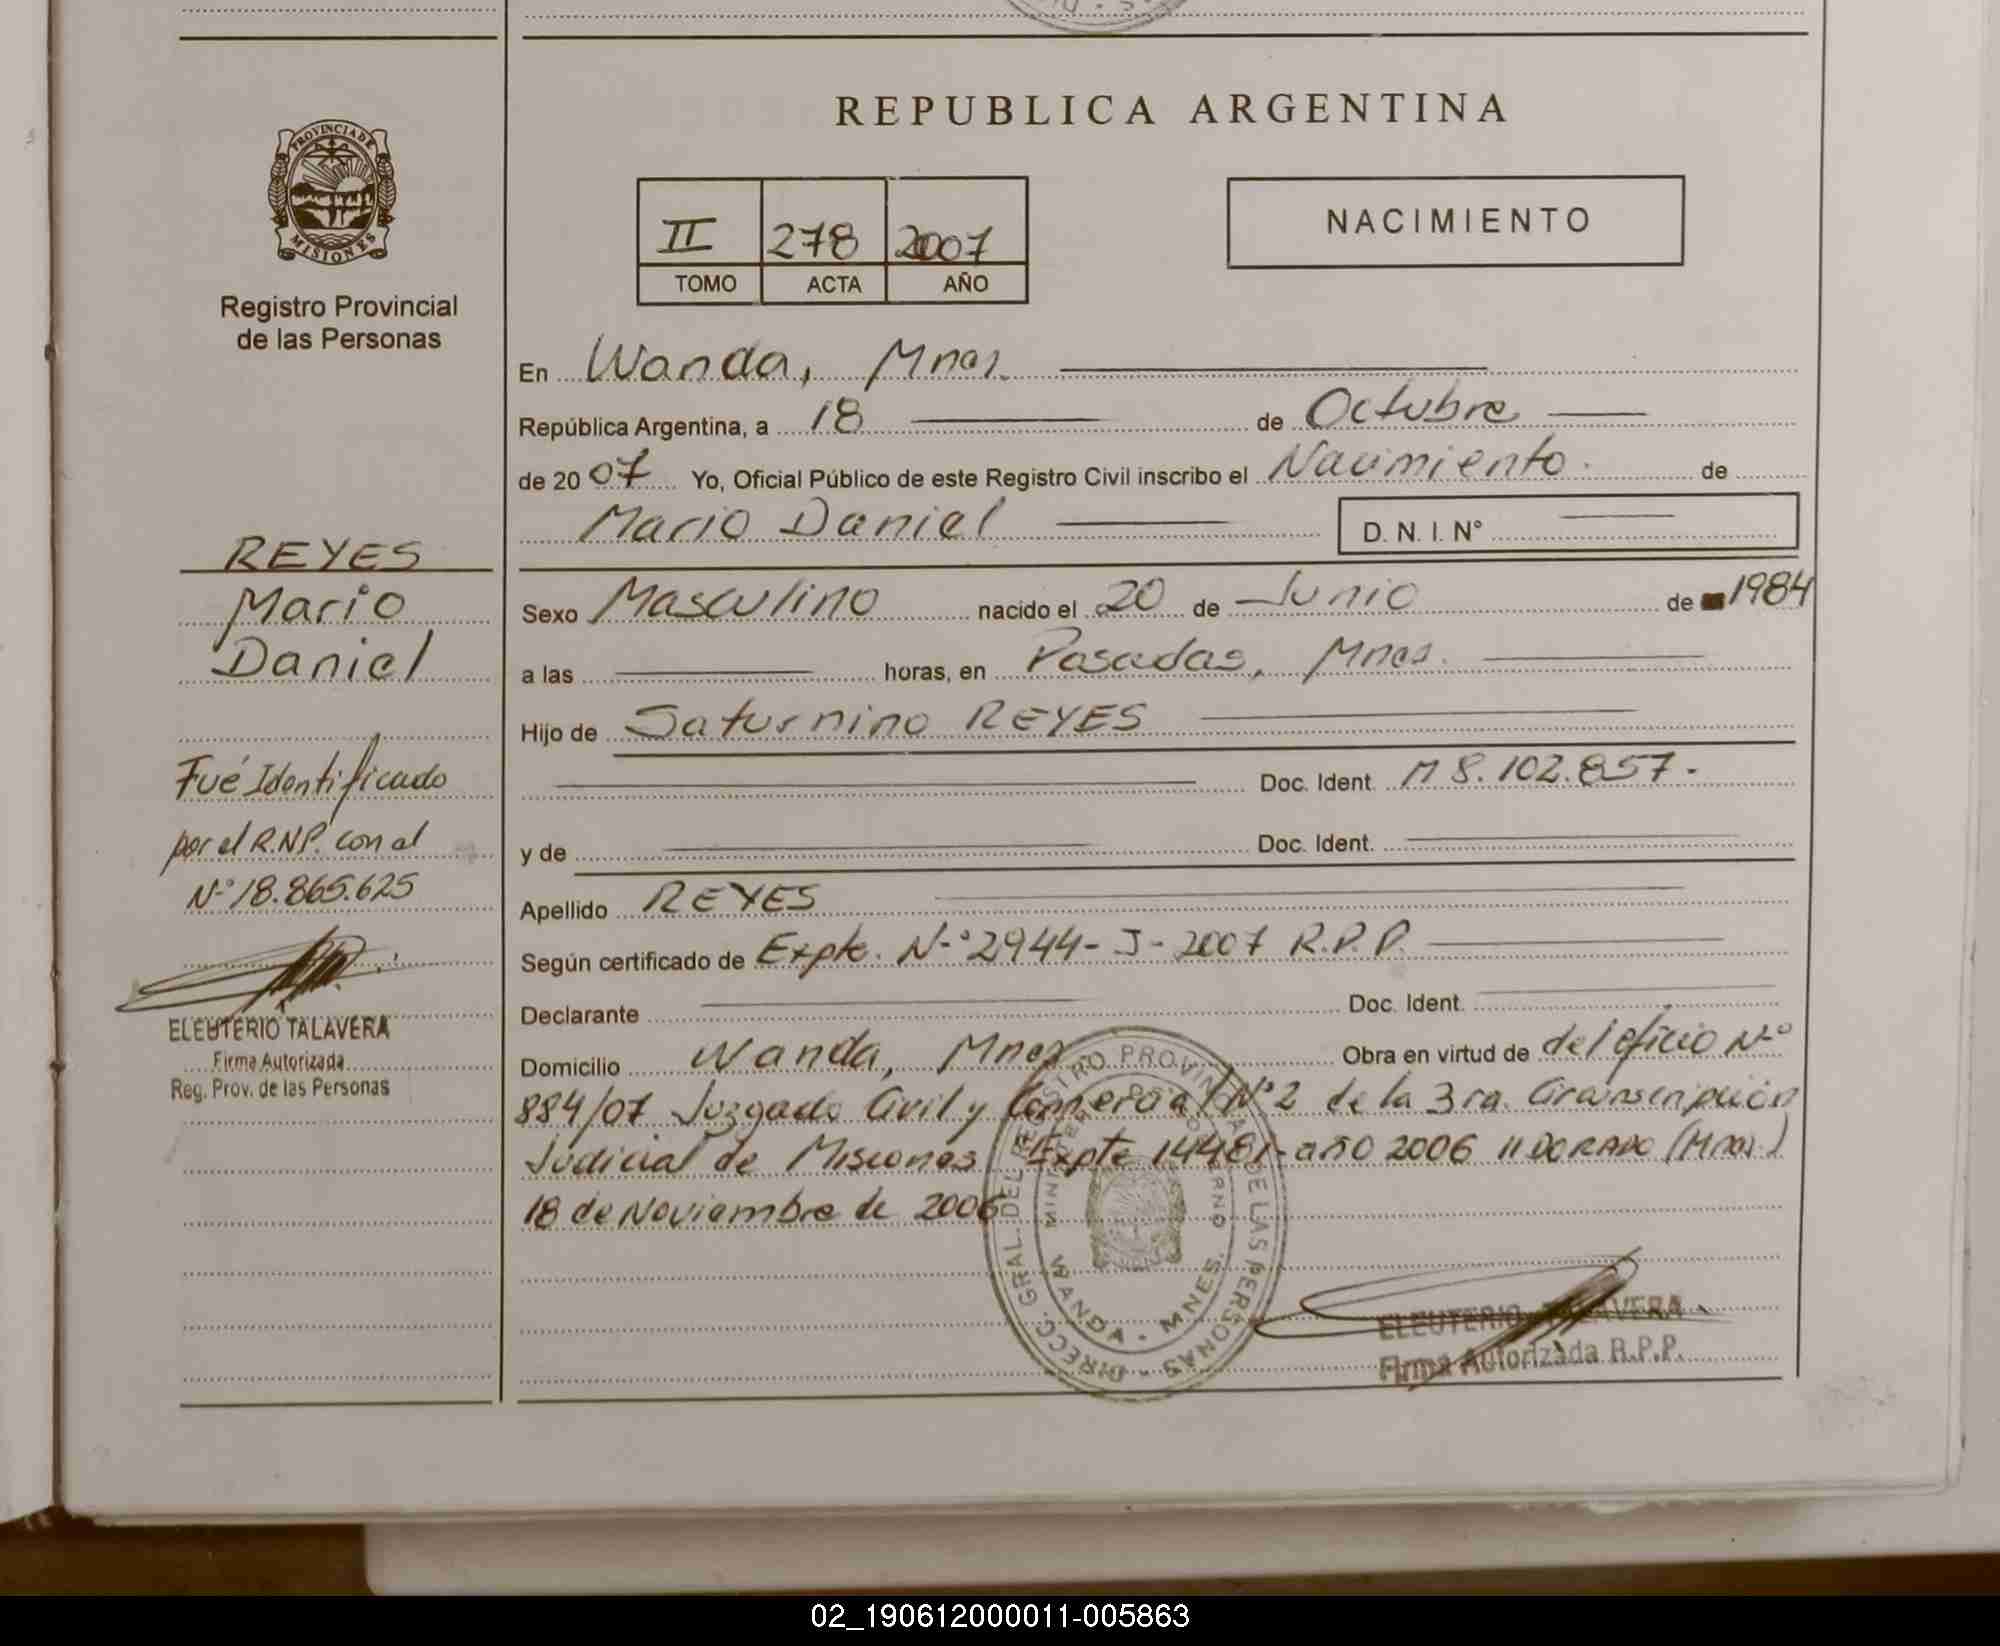 REPUBLICA ARGENTINA
PROVINCIA DE MISIONES
Registro Provincial
de las Personas
II 278 2007
TOMO ACTA AÑO
NACIMIENTO
En Wanda, Mnes.
República Argentina, a 18 de Octubre
de 2007 Yo, Oficial Público de este Registro Civil inscribo el Nacimiento. de
Mario Daniel D. N. I. N°
REYES
Mario
Daniel
Sexo Masculino nacido el 20 de Junio de 1984
a las horas, en Posadas, Mnes.
Hijo de Saturnino REYES
Doc. Ident. M 8.102.857.-
y de Doc. Ident.
Apellido REYES
Según certificado de Expte. N-° 2944- J- 2007 R.P.P.
Declarante Doc. Ident.
Domicilio Wanda, Mnes Obra en virtud de del oficio N°
884/07 Juzgado Civil y Comercial N°2 de la 3ra. Circunscripción
Judicial de Misiones Expte 14481- año 2006 DORADO (Mnes.)
18 de Noviembre de 2006
Fué Identificado
por el R.N.P. con al
N-° 18.865.625
ELEUTERIO TALAVERA
Firma Autorizada
Reg. Prov. de las Personas
DIRECC. GRAL. DEL REGISTRO PROVINCIAL DE LAS PERSONAS
WANDA - MNES.
ELEUTERIO TALAVERA
Firma Autorizada R.P.P.
02_190612000011-005863